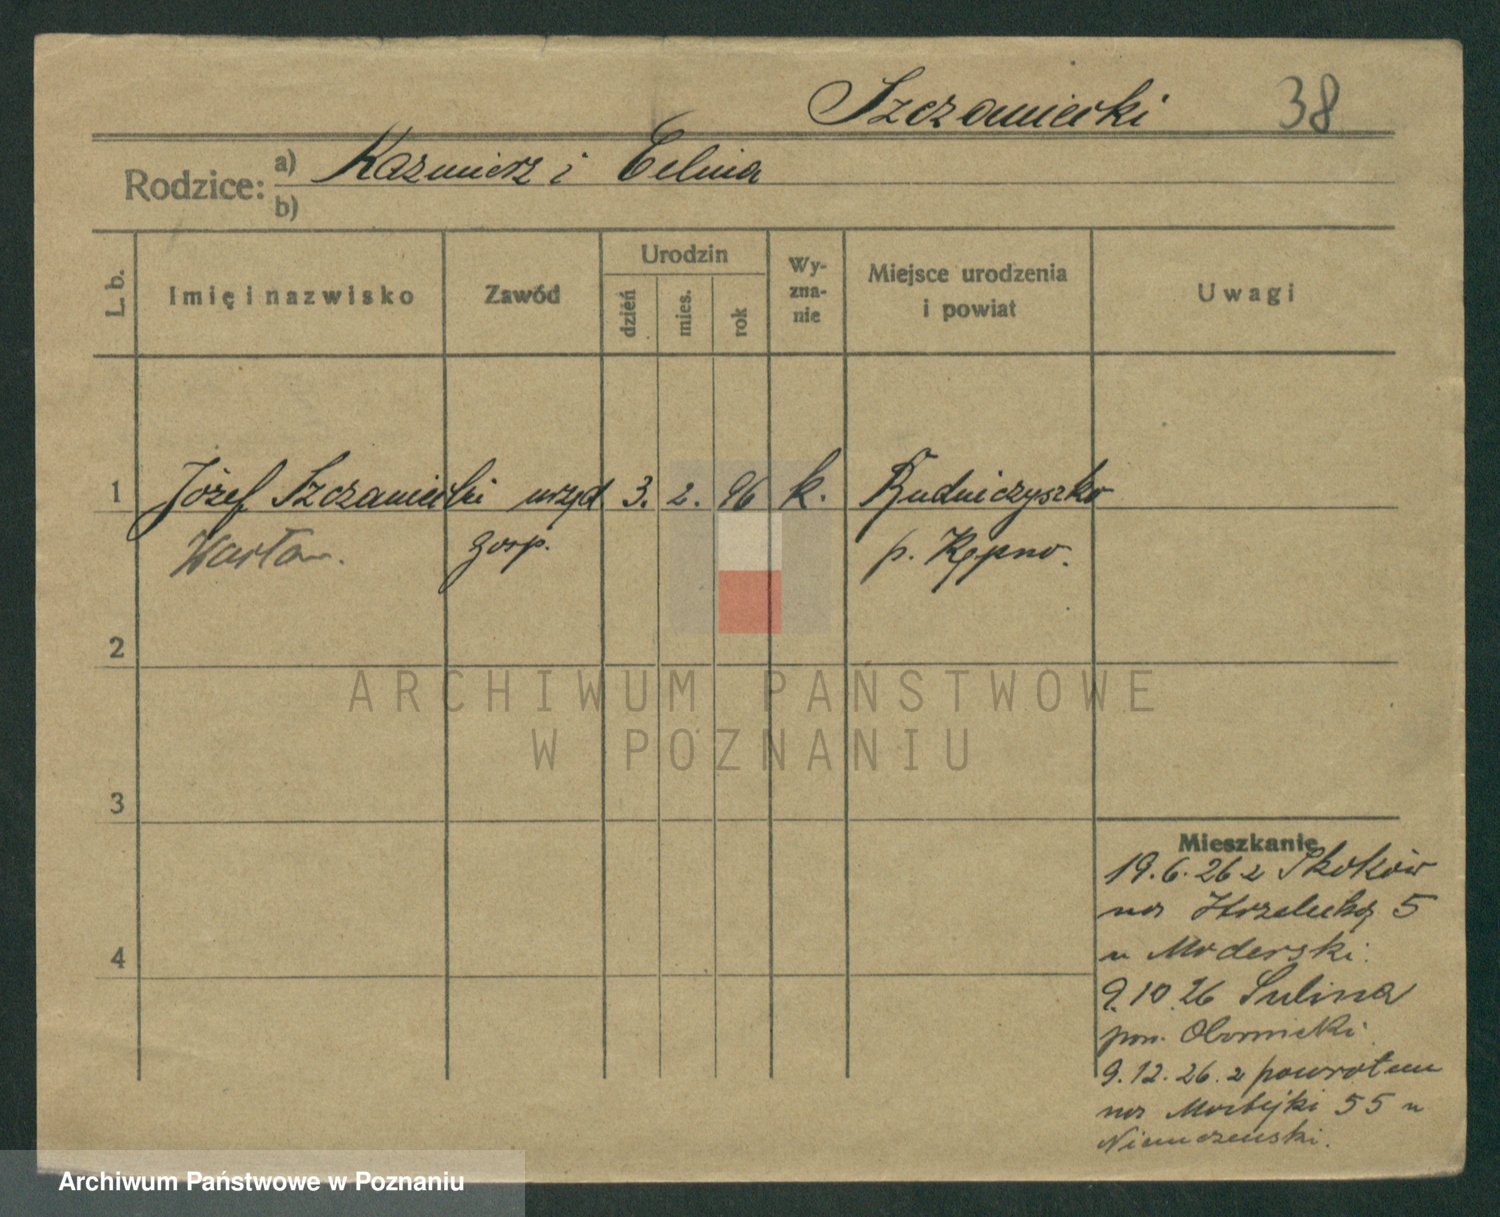 Szczaniecki 38
Rodzice: a) Kazmierz i Celina
b)
L. b.
Imię i nazwisko
Zawód
Urodzin
dzień
mies.
rok
Wy-
zna-
nie
Miejsce urodzenia
i powiat
Uwagi
1 Józef Szczaniecki urzęd 3. 2. 96 k. Rudniczysko
gosp. p. Kępno.
2
ARCHIWUM PAŃSTWOWE
W POZNANIU
3
Mieszkanie
19.6.26 z Skoków
na Strzelecką 5
u Moderski.
4
9.10.26 Sulina
pow. Obornicki
9.12.26. z powrotem
na 55 u
Niemczenski.
Archiwum Państwowe w Poznaniu